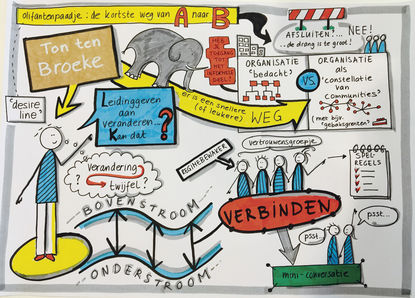 olifantenpaadje : de kortste weg van A naar B
AFSLUITEN!... NEE!
... de drang is te groot!
Ton ten
Broeke
HEB
JE
TOEGANG
TOT HET
INFORMELE
DEEL?
ORGANISATIE
'bedacht'
VS.
ORGANISATIE
als
'constellatie
van
communities'
(met bijv.
'gebaksgrenzen')
'desire
line'
Leidinggeven
aan
veranderen...
Kan dat
?
er is een snellere
(of leukere)
WEG
vertrouwensgroepje
REGIMEBEWAKER
SPEL-
REGELS
Verandering
twijfel?
BOVENSTROOM
VERBINDEN
psst...
psst....
ONDERSTROOM
mini-conversatie